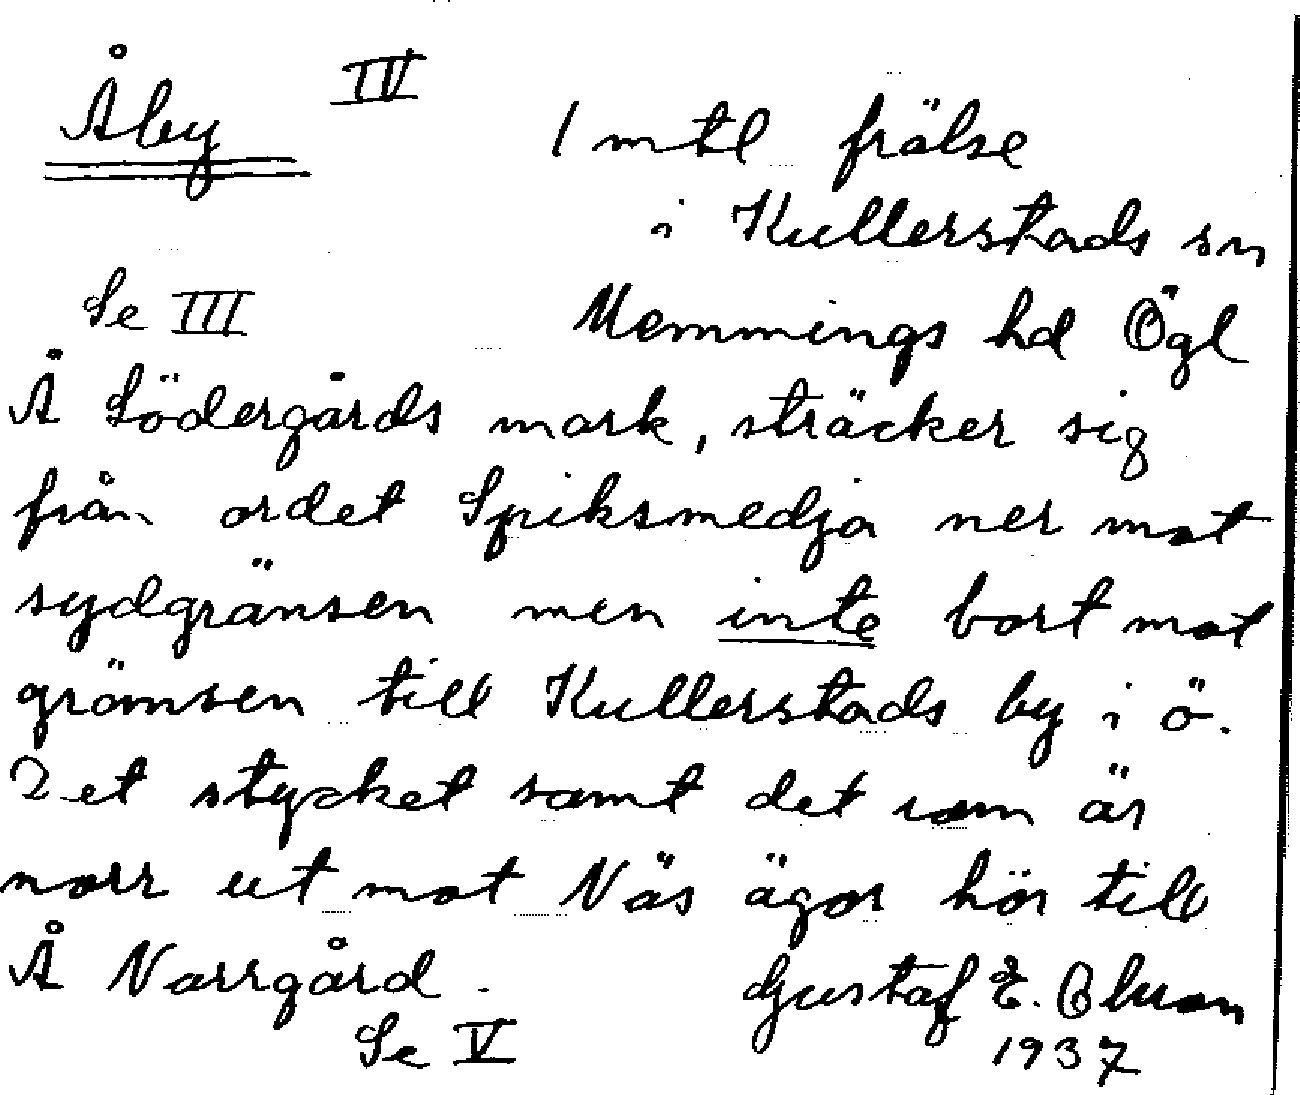 Åby IV
1 mtl frälse
i Kullerstads sn
Memmings hd Ögl
Se III
Å Södergårds mark, sträcker sig
från ordet Spiksmedja ner mot
sydgränsen men inte bort mot
gränsen till Kullerstads by i ö.
Det stycket samt det som är
norr ut mot Näs ägor hör till
Å Norrgård.
Gustaf E.
1937
Se V